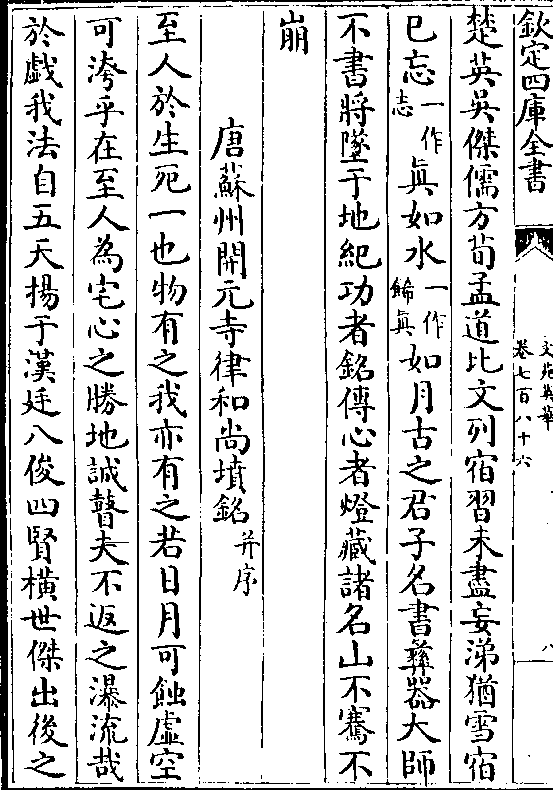 欽定四庫全書
文苑英華
卷七百八十六
八
楚英吳傑儒方荀孟道比文列宿習未盡妄涕猶雪宿
已忘一作志真如水一作歸真如月古之君子名書彝器大師
不書將墜于地紀功者銘傳心者燈藏諸名山不騫不
崩
唐蘇州開元寺律和尚墳銘并序
至人於生死一也物有之我亦有之若日月可蝕虛空
可洿乎在至人為宅心之勝地誠瞽夫不返之瀑流哉
於戲我法自五天揚于漢廷八俊四賢橫世傑出後之